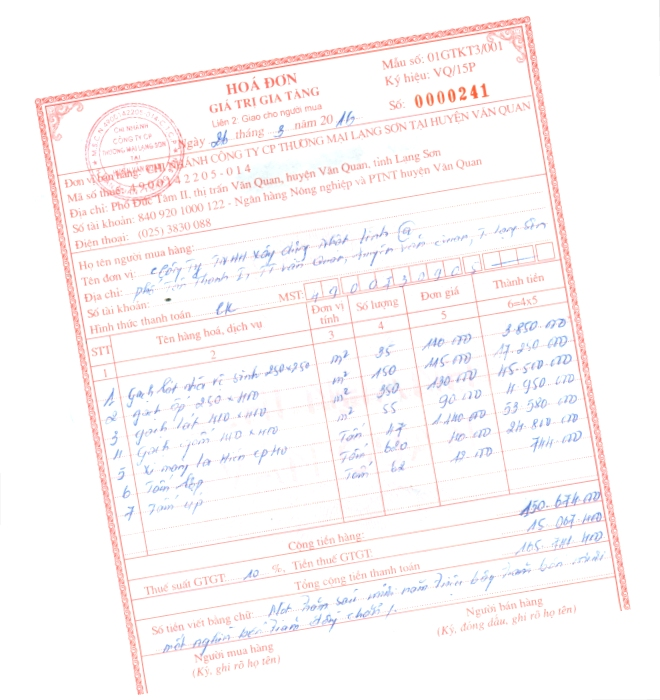 HOÁ ĐƠN
GIÁ TRỊ GIA TĂNG
Liên 2: Giao cho người mua
Mẫu số: 01GTKT3/001
Ký hiệu: VQ/15P
Số: 0000241
Ngày 26 tháng 3 năm 2016
CHI NHÁNH
CÔNG TY CP
THƯƠNG MẠI LẠNG SƠN
TẠI
Đơn vị bán hàng: CHI NHÁNH CÔNG TY CP THƯƠNG MẠI LẠNG SƠN TẠI HUYỆN VĂN QUAN
Mã số thuế: 4900142205-014
Địa chỉ: Phố Đức Tâm II, thị trấn Văn Quan, huyện Văn Quan, tỉnh Lạng Sơn
Số tài khoản: 840 920 1000 122 - Ngân hàng Nông nghiệp và PTNT huyện Văn Quan
Điện thoại: (025) 3830 088
Họ tên người mua hàng:
Tên đơn vị: Công ty TNHH xây dựng
Địa chỉ: phố Thanh I, TT Văn Quan, huyện Văn Quan, T. Lạng Sơn
Số tài khoản:
Hình thức thanh toán CK MST:
STT Tên hàng hoá, dịch vụ Đơn vị tính Số lượng Đơn giá Thành tiền
1 2 3 4 5 6=4x5
1 Gạch lát nền vệ sinh 250x250 m² 35 110.000 3.850.000
2 gạch ốp 250 x 400 m² 150 115.000 17.250.000
3 gạch lát 400 x 400 m² 350 130.000 45.500.000
4 Gạch 400 x 400 m² 55 90.000 4.950.000
5 Xi măng Tấn 47 1.140.000 53.580.000
6 Tấm lợp Tấm 620 40.000 24.800.000
7 Tấm úp Tấm 62 12.000 744.000
Cộng tiền hàng: 150.674.000
Thuế suất GTGT: 10 %, Tiền thuế GTGT: 15.067.400
Tổng cộng tiền thanh toán 165.741.400
Số tiền viết bằng chữ: Một trăm sáu mươi năm triệu bảy trăm bốn mươi
một nghìn bốn trăm đồng chẵn
Người mua hàng
(Ký, ghi rõ họ tên)
Người bán hàng
(Ký, đóng dấu, ghi rõ họ tên)